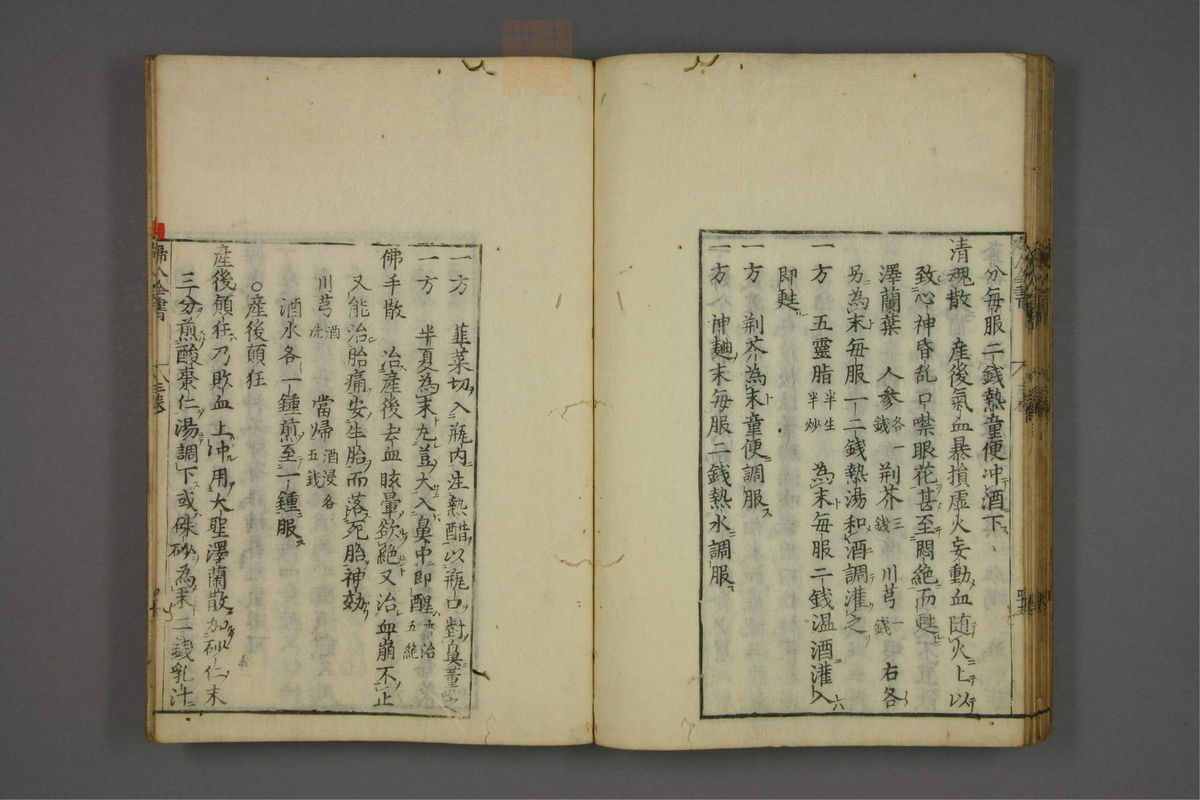 分毎服二錢熱童便冲酒下
清魂散　産後氣血暴損虛火妄動血随火上以
致心神昏乱口噤眼花甚至悶絶而甦
澤蘭葉　人参各一錢　荆芥三錢　川芎一錢　右各
另為末毎服一二錢熱湯和酒調灌之
一方　五靈脂半生半炒　為末毎服二錢温酒灌入
即甦
一方　荆芥為末童便調服
一方　神麯末毎服二錢熱水調服
一方　韮菜切入瓶内注熱醋以瓶口對鼻薫之
一方　半夏為末丸豆大入鼻中即醒亦治五絶
佛手散　治産後去血眩暈欲絶又治血崩不止
又能治胎痛安生胎而落死胎神効
川芎酒洗　當歸酒浸各五錢
酒水各一鍾煎至一鍾服
○産後顛狂
産後顛狂乃敗血上冲用大聖澤蘭散加砂仁末
三分煎酸棗仁湯調下或硃砂為末二錢乳汁
婦人全書
三巻